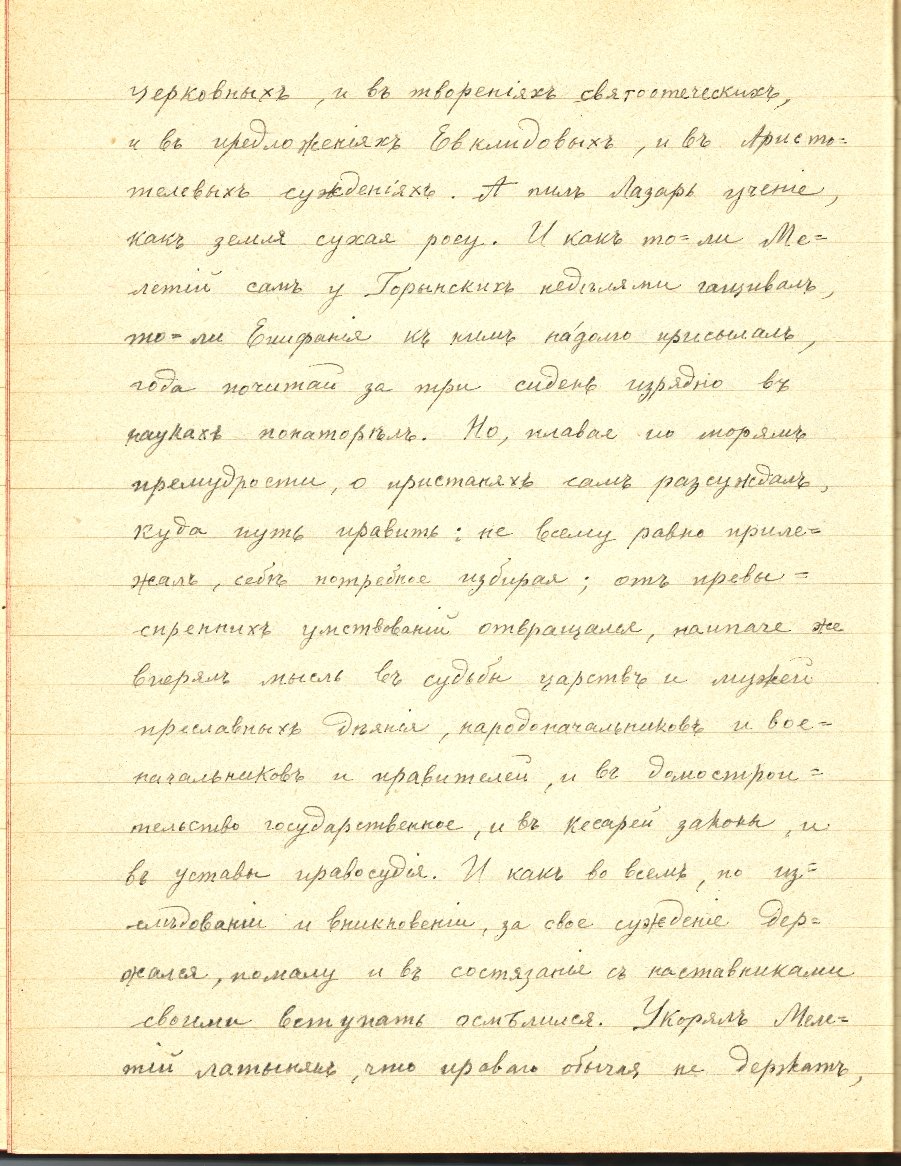 черковныхъ, и въ творенiяхъ святоотеческихъ,
и въ предложенiяхъ Евклидовыхъ, и въ Аристо=
телевыхъ сужденiяхъ. А пилъ Лазарь ученiе,
какъ земля сухая росу. И какъ то=ли Ме=
летiй самъ у Горынскихъ недѣлями гащивалъ,
то=ли Епифанiя къ нимъ на́долго присылалъ,
года почитай за три сиденъ изрядно въ
наукахъ понаторѣлъ. Но, плавая по морямъ
премудрости, о пристаняхъ самъ разсуждалъ,
куда путь править: не всему равно приле=
жалъ, себѣ потребное избирая; отъ превы=
спреннихъ умствованiй отвращался, наипаче же
вперялъ мысль въ судьбы царствъ и мужей
преславныхъ дѣянiя, народоначальниковъ и вое=
начальниковъ и правителей, и въ домострои=
тельство государственное, и въ кесарей законы, и
въ уставы правосудiя. И какъ во всемъ, по из=
слѣдованiи и вникновенiи, за свое сужденiе дер=
жался, помалу и въ состязанiе съ наставниками
своими вступать осмѣлился. Укорялъ Меле=
тiй латынянъ, что праваго обычая не держатъ,